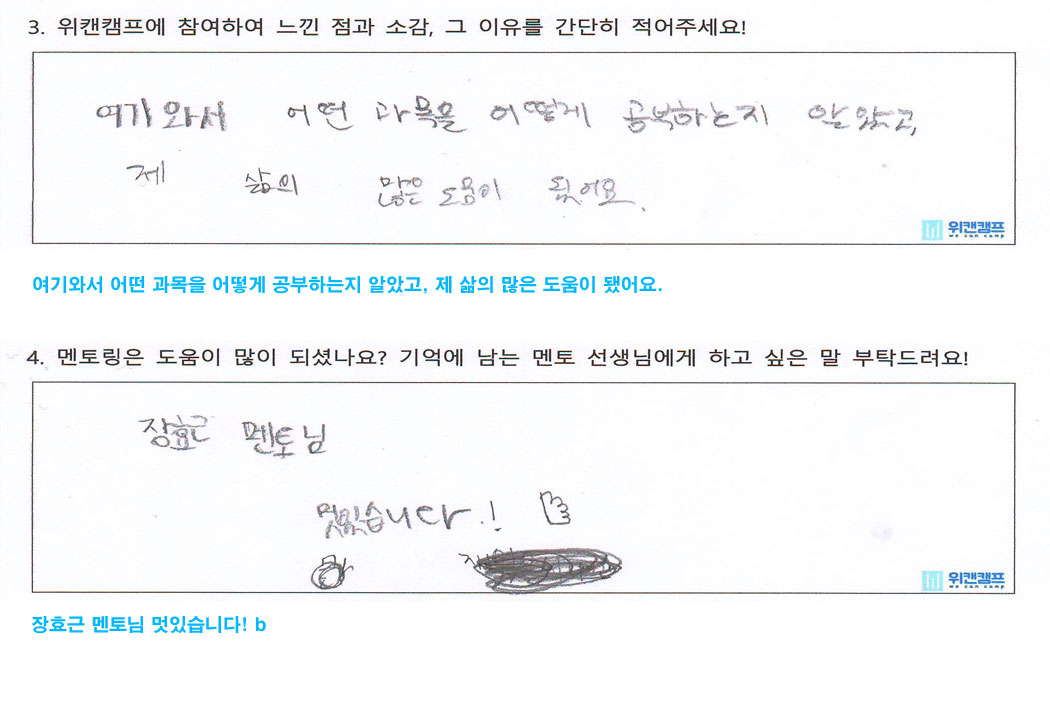 3. 위캔캠프에 참여하여 느낀 점과 소감, 그 이유를 간단히 적어주세요!
여기와서 어떤 과목을 어떻게 공부하는지 알았고,
제 삶의 많은 도움이 됬어요.
위캔캠프
we can camp
여기와서 어떤 과목을 어떻게 공부하는지 알았고, 제 삶의 많은 도움이 됐어요.
4. 멘토링은 도움이 많이 되셨나요? 기억에 남는 멘토 선생님에게 하고 싶은 말 부탁드려요!
장효근 멘토님
멋있습니다.!
위캔캠프
we can camp
장효근 멘토님 멋있습니다! b